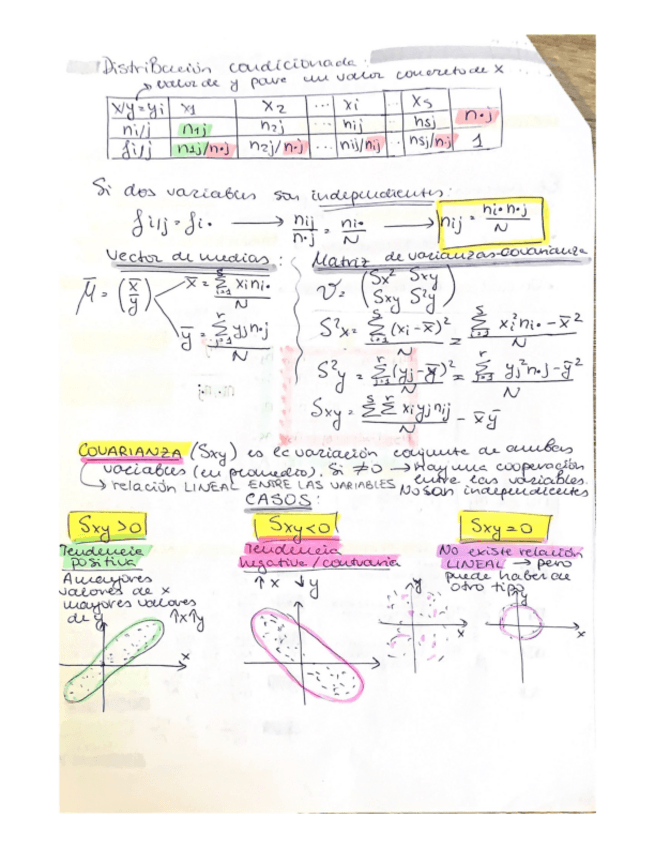 Distribución condicionada:
→ valor de y para un valor concreto de x
x/y=yj x1 x2 ... xi ... xs
ni/j n1j n2j nij nsj n•j
fi/j n1j/n•j n2j/n•j ... nij/n•j ... nsj/n•j 1
Si dos variables son independientes:
fi/j = fi• → nij/n•j = ni•/N → nij = ni•n•j/N
Vector de medias:
μ̄ = (x̄ ȳ)
x̄ = Σ(i=1→s) xini•/N
ȳ = Σ(j=1→r) yjn•j/N
Matriz de varianzas-covarianza
V = (Sx² Sxy
Sxy S²y)
S²x = Σ(i=1→s) (xi-x̄)²/N = Σ(i=1→s) xi²ni•-x̄²/N
S²y = Σ(j=1→r) (yj-ȳ)²/N = Σ(j=1→r) yj²n•j-ȳ²/N
Sxy = Σ(s) Σ(r) xiyjnij/N - x̄ȳ
COVARIANZA (Sxy) es la variación conjunta de ambas
variables (en promedio). Si ≠0 → Hay una cooperación
entre las variables.
→ relación LINEAL ENTRE LAS VARIABLES No son independientes
CASOS:
Sxy>0
Tendencia
positiva
A mayores
valores de x
mayores valores
de y ↑x↑y
y
x
Sxy<0
Tendencia
negativa/contraria
↑x ↓y
Sxy=0
No existe relación
LINEAL → pero
puede haber de
otro tipo
y
x
y
x